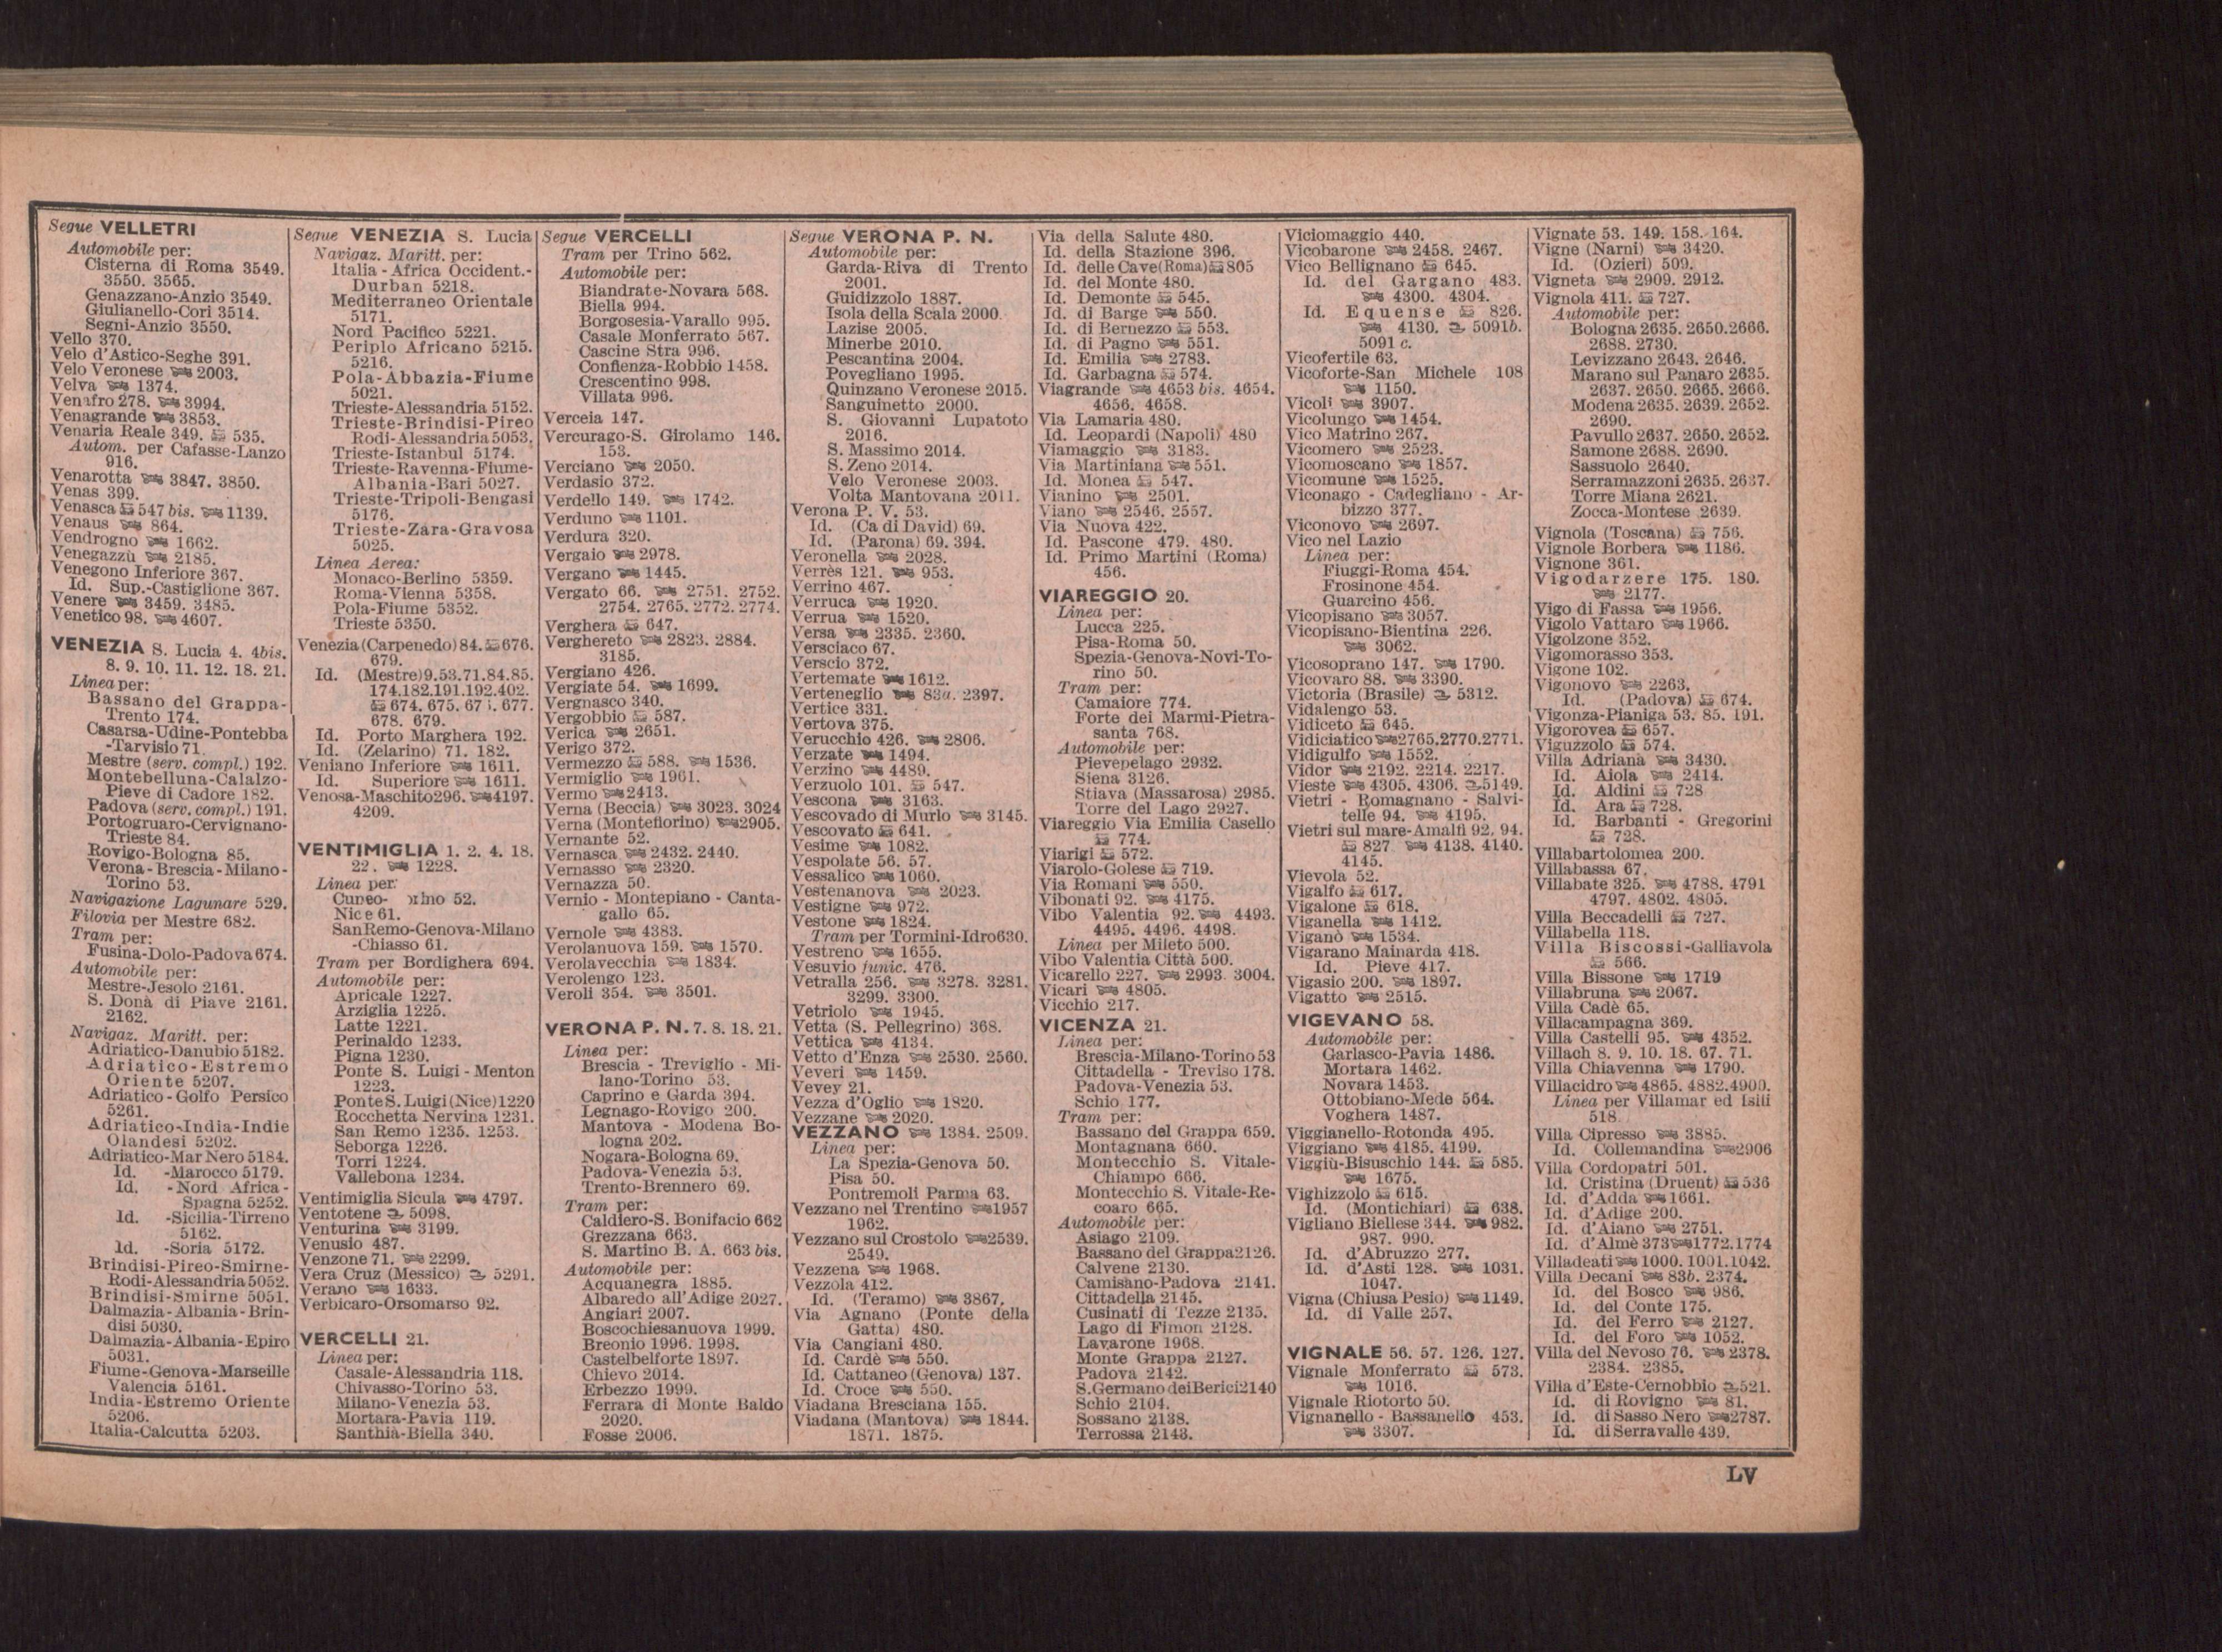 Segue VELLETRI
Automobile per:
Cisterna di Roma 3549.
3550. 3565.
Genazzano-Anzio 3549.
Giulianello-Cori 3514.
Segni-Anzio 3550.
Vello 370.
Velo d'Astico-Seghe 391.
Velo Veronese 2003.
Velva 1374.
Venafro 278. 3994.
Venagrande 3853.
Venaria Reale 349. 535.
Autom. per Cafasse-Lanzo
916.
Venarotta 3847. 3850.
Venas 399.
Venasca 547 bis. 1139.
Venaus 864.
Vendrogno 1662.
Venegazzù 2185.
Venegono Inferiore 367.
Id. Sup.-Castiglione 367.
Venere 3459. 3485.
Venetico 98. 4607.
VENEZIA S. Lucia 4. 4bis.
8. 9. 10. 11. 12. 18. 21.
Linea per:
Bassano del Grappa-
Trento 174.
Casarsa-Udine-Pontebba
-Tarvisio 71.
Mestre (serv. compl.) 192.
Montebelluna-Calalzo-
Pieve di Cadore 182.
Padova (serv. compl.) 191.
Portogruaro-Cervignano-
Trieste 84.
Rovigo-Bologna 85.
Verona-Brescia-Milano-
Torino 53.
Navigazione Lagunare 529.
Filovia per Mestre 682.
Tram per:
Fusina-Dolo-Padova 674.
Automobile per:
Mestre-Jesolo 2161.
S. Donà di Piave 2161.
2162.
Navigaz. Maritt. per:
Adriatico-Danubio 5182.
Adriatico-Estremo
Oriente 5207.
Adriatico-Golfo Persico
5261.
Adriatico-India-Indie
Olandesi 5202.
Adriatico-Mar Nero 5184.
Id. -Marocco 5179.
Id. -Nord Africa-
Spagna 5252.
Id. -Sicilia-Tirreno
5162.
Id. -Soria 5172.
Brindisi-Pireo-Smirne-
Rodi-Alessandria 5052.
Brindisi-Smirne 5051.
Dalmazia-Albania-Brin-
disi 5030.
Dalmazia-Albania-Epiro
5031.
Fiume-Genova-Marseille
Valencia 5161.
India-Estremo Oriente
5206.
Italia-Calcutta 5203.
Segue VENEZIA S. Lucia
Navigaz. Maritt. per:
Italia-Africa Occident.-
Durban 5218.
Mediterraneo Orientale
5171.
Nord Pacifico 5221.
Periplo Africano 5215.
5216.
Pola-Abbazia-Fiume
5021.
Trieste-Alessandria 5152.
Trieste-Brindisi-Pireo
Rodi-Alessandria 5053.
Trieste-Istanbul 5174.
Trieste-Ravenna-Fiume-
Albania-Bari 5027.
Trieste-Tripoli-Bengasi
5176.
Trieste-Zara-Gravosa
5025.
Linea Aerea:
Monaco-Berlino 5359.
Roma-Vienna 5358.
Pola-Fiume 5352.
Trieste 5350.
Venezia (Carpenedo) 84. 676.
679.
Id. (Mestre) 9.53.71.84.85.
174.182.191.192.402.
674. 675. 677.
678. 679.
Id. Porto Marghera 192.
Id. (Zelarino) 71. 182.
Veniano Inferiore 1611.
Id. Superiore 1611.
Venosa-Maschito 296. 4197.
4209.
VENTIMIGLIA 1. 2. 4. 18.
22. 1228.
Linea per:
Cuneo- 52.
Nice 61.
San Remo-Genova-Milano
-Chiasso 61.
Tram per Bordighera 694.
Automobile per:
Apricale 1227.
Arziglia 1225.
Latte 1221.
Perinaldo 1233.
Pigna 1230.
Ponte S. Luigi-Menton
1223.
Ponte S. Luigi (Nice) 1220
Rocchetta Nervina 1231.
San Remo 1235. 1253.
Seborga 1226.
Torri 1224.
Vallebona 1234.
Ventimiglia Sicula 4797.
Ventotene 5098.
Venturina 3199.
Venusio 487.
Venzone 71. 2299.
Vera Cruz (Messico) 5291.
Verano 1633.
Verbicaro-Orsomarso 92.
VERCELLI 21.
Linea per:
Casale-Alessandria 118.
Chivasso-Torino 53.
Milano-Venezia 53.
Mortara-Pavia 119.
Santhià-Biella 340.
Segue VERCELLI
Tram per Trino 562.
Automobile per:
Biandrate-Novara 568.
Biella 994.
Borgosesia-Varallo 995.
Casale Monferrato 567.
Cascine Stra 996.
Confienza-Robbio 1458.
Crescentino 998.
Villata 996.
Verceia 147.
Vercurago-S. Girolamo 146.
153.
Verciano 2050.
Verdasio 372.
Verdello 149. 1742.
Verduno 1101.
Verdura 320.
Vergaio 2978.
Vergano 1445.
Vergato 66. 2751. 2752.
2754. 2765. 2772. 2774.
Verghera 647.
Verghereto 2823. 2884.
3185.
Vergiano 426.
Vergiate 54. 1699.
Vergnasco 340.
Vergobbio 587.
Verica 2651.
Verigo 372.
Vermezzo 588. 1536.
Vermiglio 1961.
Vermo 2413.
Verna (Beccia) 3023. 3024
Verna (Montefiorino) 2905.
Vernante 52.
Vernasca 2432. 2440.
Vernasso 2320.
Vernazza 50.
Vernio - Montepiano - Canta-
gallo 65.
Vernole 4383.
Verolanuova 159. 1570.
Verolavecchia 1834.
Verolengo 123.
Veroli 354. 3501.
VERONA P. N. 7. 8. 18. 21.
Linea per:
Brescia - Treviglio - Mi-
lano-Torino 53.
Caprino e Garda 394.
Legnago-Rovigo 200.
Mantova - Modena Bo-
logna 202.
Nogara-Bologna 69.
Padova-Venezia 53.
Trento-Brennero 69.
Tram per:
Caldiero-S. Bonifacio 662
Grezzana 663.
S. Martino B. A. 663 bis.
Automobile per:
Acquanegra 1885.
Albaredo all'Adige 2027.
Angiari 2007.
Boscochiesanuova 1999.
Breonio 1996. 1998.
Castelbelforte 1897.
Chievo 2014.
Erbezzo 1999.
Ferrara di Monte Baldo
2020.
Fosse 2006.
Segue VERONA P. N.
Automobile per:
Garda-Riva di Trento
2001.
Guidizzolo 1887.
Isola della Scala 2000.
Lazise 2005.
Minerbe 2010.
Pescantina 2004.
Povegliano 1995.
Quinzano Veronese 2015.
Sanguinetto 2000.
S. Giovanni Lupatoto
2016.
S. Massimo 2014.
S. Zeno 2014.
Velo Veronese 2003.
Volta Mantovana 2011.
Verona P. V. 53.
Id. (Ca di David) 69.
Id. (Parona) 69. 394.
Veronella 2028.
Verrès 121. 953.
Verrino 467.
Verruca 1920.
Verrua 1520.
Versa 2335. 2360.
Versciaco 67.
Verscio 372.
Vertemate 1612.
Verteneglio 83a. 2397.
Vertice 331.
Vertova 375.
Verucchio 426. 2806.
Verzate 1494.
Verzino 4489.
Verzuolo 101. 547.
Vescona 3163.
Vescovado di Murlo 3145.
Vescovato 641.
Vesime 1082.
Vespolate 56. 57.
Vessalico 1060.
Vestenanova 2023.
Vestigne 972.
Vestone 1824.
Tram per Tormini-Idro 630.
Vestreno 1655.
Vesuvio funic. 476.
Vetralla 256. 3278. 3281.
3299. 3300.
Vetriolo 1945.
Vetta (S. Pellegrino) 368.
Vettica 4134.
Vetto d'Enza 2530. 2560.
Veveri 1459.
Vevey 21.
Vezza d'Oglio 1820.
Vezzane 2020.
VEZZANO 1384. 2509.
Linea per:
La Spezia-Genova 50.
Pisa 50.
Pontremoli Parma 63.
Vezzano nel Trentino 1957
1962.
Vezzano sul Crostolo 2539.
2549.
Vezzena 1968.
Vezzola 412.
Id. (Teramo) 3867.
Via Agnano (Ponte della
Gatta) 480.
Via Cangiani 480.
Id. Cardè 550.
Id. Cattaneo (Genova) 137.
Id. Croce 550.
Viadana Bresciana 155.
Viadana (Mantova) 1844.
1871. 1875.
Via della Salute 480.
Id. della Stazione 396.
Id. delle Cave (Roma) 805
Id. del Monte 480.
Id. Demonte 545.
Id. di Barge 550.
Id. di Bernezzo 553.
Id. di Pagno 551.
Id. Emilia 2783.
Id. Garbagna 574.
Viagrande 4653 bis. 4654.
4656. 4658.
Via Lamaria 480.
Id. Leopardi (Napoli) 480
Viamaggio 3183.
Via Martiniana 551.
Id. Monea 547.
Vianino 2501.
Viano 2546. 2557.
Via Nuova 422.
Id. Pascone 479. 480.
Id. Primo Martini (Roma)
456.
VIAREGGIO 20.
Linea per:
Lucca 225.
Pisa-Roma 50.
Spezia-Genova-Novi-To-
rino 50.
Tram per:
Camaiore 774.
Forte dei Marmi-Pietra-
santa 768.
Automobile per:
Pievepelago 2932.
Siena 3126.
Stiava (Massarosa) 2985.
Torre del Lago 2927.
Viareggio Via Emilia Casello
774.
Viarigi 572.
Viarolo-Golese 719.
Via Romani 550.
Vibonati 92. 4175.
Vibo Valentia 92. 4493.
4495. 4496. 4498.
Linea per Mileto 500.
Vibo Valentia Città 500.
Vicarello 227. 2993. 3004.
Vicari 4805.
Vicchio 217.
VICENZA 21.
Linea per:
Brescia-Milano-Torino 53
Cittadella - Treviso 178.
Padova-Venezia 53.
Schio 177.
Tram per:
Bassano del Grappa 659.
Montagnana 660.
Montecchio S. Vitale-
Chiampo 666.
Montecchio S. Vitale-Re-
coaro 665.
Automobile per:
Asiago 2109.
Bassano del Grappa 2126.
Calvene 2130.
Camisano-Padova 2141.
Cittadella 2145.
Cusinati di Tezze 2135.
Lago di Fimon 2128.
Lavarone 1968.
Monte Grappa 2127.
Padova 2142.
S. Germano dei Berici 2140
Schio 2104.
Sossano 2138.
Terrossa 2143.
Viciomaggio 440.
Vicobarone 2458. 2467.
Vico Bellignano 645.
Id. del Gargano 483.
4300. 4304.
Id. Equense 826.
4130. 5091b.
5091 c.
Vicofertile 63.
Vicoforte-San Michele 108
1150.
Vicoli 3907.
Vicolungo 1454.
Vico Matrino 267.
Vicomero 2523.
Vicomoscano 1857.
Vicomune 1525.
Viconago - Cadegliano - Ar-
bizzo 377.
Viconovo 2697.
Vico nel Lazio
Linea per:
Fiuggi-Roma 454.
Frosinone 454.
Guarcino 456.
Vicopisano 3057.
Vicopisano-Bientina 226.
3062.
Vicosoprano 147. 1790.
Vicovaro 88. 3390.
Victoria (Brasile) 5312.
Vidalengo 53.
Vidiceto 645.
Vidiciatico 2765. 2770. 2771.
Vidigulfo 1552.
Vidor 2192. 2214. 2217.
Vieste 4305. 4306. 5149.
Vietri - Romagnano - Salvi-
telle 94. 4195.
Vietri sul mare-Amalfi 92. 94.
827 4138. 4140.
4145.
Vievola 52.
Vigalfo 617.
Vigalone 618.
Viganella 1412.
Viganò 1534.
Vigarano Mainarda 418.
Id. Pieve 417.
Vigasio 200. 1897.
Vigatto 2515.
VIGEVANO 58.
Automobile per:
Garlasco-Pavia 1486.
Mortara 1462.
Novara 1453.
Ottobiano-Mede 564.
Voghera 1487.
Viggianello-Rotonda 495.
Viggiano 4185. 4199.
Viggiù-Bisuschio 144. 585.
1675.
Vighizzolo 615.
Id. (Montichiari) 638.
Vigliano Biellese 344. 982.
987. 990.
Id. d'Abruzzo 277.
Id. d'Asti 128. 1031.
1047.
Vigna (Chiusa Pesio) 1149.
Id. di Valle 257.
VIGNALE 56. 57. 126. 127.
Vignale Monferrato 573.
1016.
Vignale Riotorto 50.
Vignanello - Bassanello 453.
3307.
Vignate 53. 149. 158. 164.
Vigne (Narni) 3420.
Id. (Ozieri) 509.
Vigneta 2909. 2912.
Vignola 411. 727.
Automobile per:
Bologna 2635. 2650. 2666.
2688. 2730.
Levizzano 2643. 2646.
Marano sul Panaro 2635.
2637. 2650. 2665. 2666.
Modena 2635. 2639. 2652.
2690.
Pavullo 2637. 2650. 2652.
Samone 2688. 2690.
Sassuolo 2640.
Serramazzoni 2635. 2637.
Torre Miana 2621.
Zocca-Montese 2639.
Vignola (Toscana) 756.
Vignole Borbera 1186.
Vignone 361.
Vigodarzere 175. 180.
2177.
Vigo di Fassa 1956.
Vigolo Vattaro 1966.
Vigolzone 352.
Vigomorasso 353.
Vigone 102.
Vigonovo 2263.
Id. (Padova) 674.
Vigonza-Pianiga 53. 85. 191.
Vigorovea 657.
Viguzzolo 574.
Villa Adriana 3430.
Id. Aiola 2414.
Id. Aldini 728
Id. Ara 728.
Id. Barbanti - Gregorini
728.
Villabartolomea 200.
Villabassa 67.
Villabate 325. 4788. 4791
4797. 4802. 4805.
Villa Beccadelli 727.
Villabella 118.
Villa Biscossi-Galliavola
566.
Villa Bissone 1719
Villabruna 2067.
Villa Cadè 65.
Villacampagna 369.
Villa Castelli 95. 4352.
Villach 8. 9. 10. 18. 67. 71.
Villa Chiavenna 1790.
Villacidro 4865. 4882. 4900.
Linea per Villamar ed Isili
518.
Villa Cipresso 3885.
Id. Collemandina 2906
Villa Cordopatri 501.
Id. Cristina (Druent) 536
Id. d'Adda 1661.
Id. d'Adige 200.
Id. d'Aiano 2751.
Id. d'Almè 373 1772. 1774
Villadeati 1000. 1001. 1042.
Villa Decani 83b. 2374.
Id. del Bosco 986.
Id. del Conte 175.
Id. del Ferro 2127.
Id. del Foro 1052.
Villa del Nevoso 76. 2378.
2384. 2385.
Villa d'Este-Cernobbio 521.
Id. di Rovigno 81.
Id. di Sasso Nero 2787.
Id. di Serravalle 439.
LV